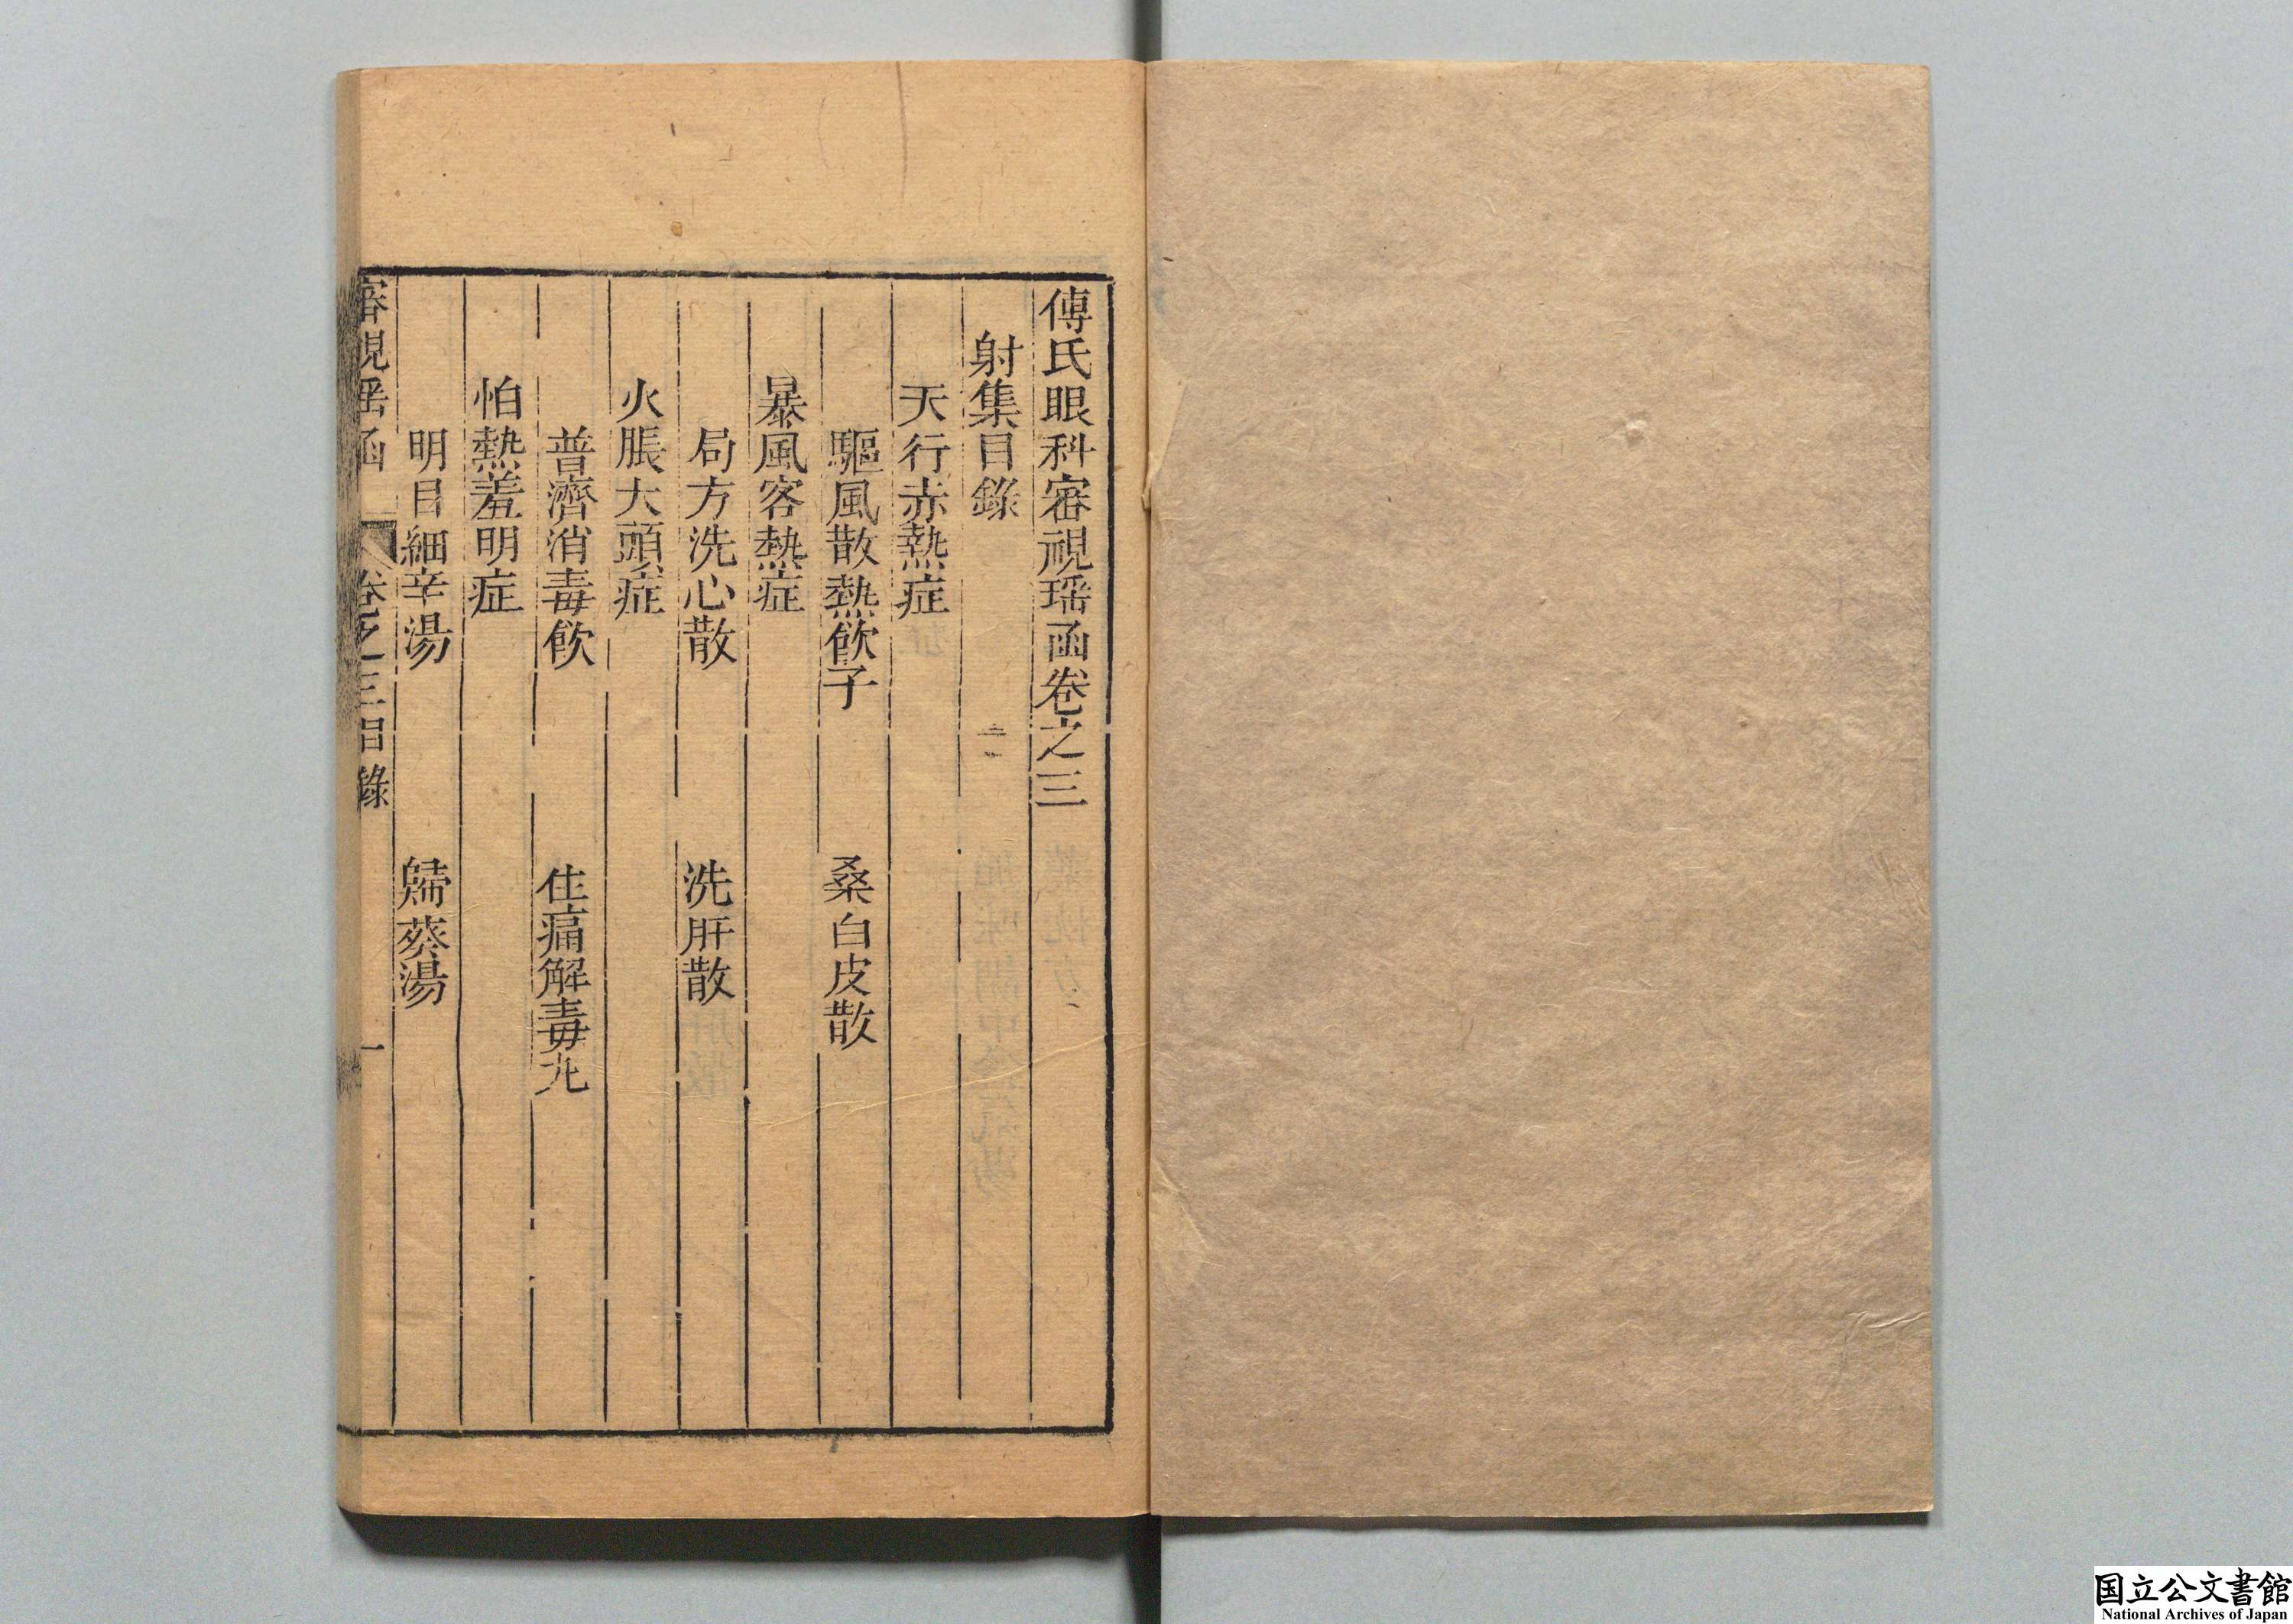 傅氏眼科審視瑶函卷之三
射集目錄
天行赤熱症
驅風散熱飲子　桑白皮散
暴風客熱症
局方洗心散　洗肝散
火脹大頭症
普濟消毒飲　住痛解毒丸
怕熱羞明症
明目細辛湯　歸葵湯
審視瑶函　卷之三目錄　一
国立公文書館
National Archives of Japan